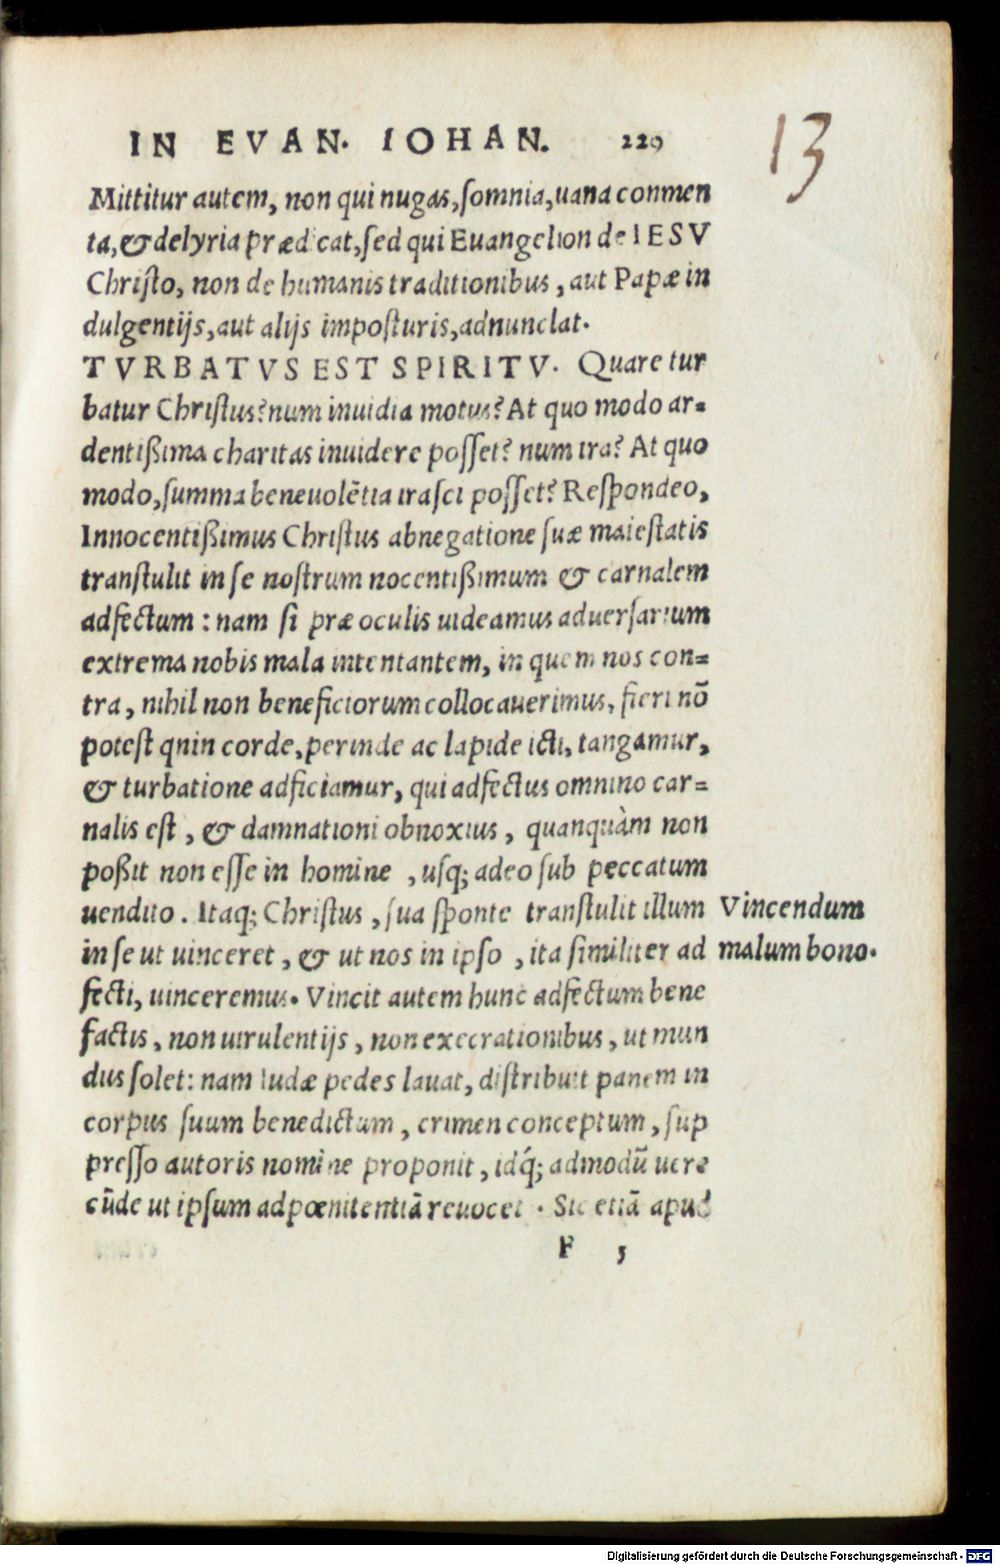 IN EVAN. IOHAN. 229
13
Mittitur autem, non qui nugas, ſomnia, uana conmen
ta, & delyria prædicat, ſed qui Euangelion de IESV
Chriſto, non de humanis traditionibus, aut Papæ in
dulgentijs, aut alijs impoſturis, adnunciat.
TVRBATVS EST SPIRITV. Quare tur
batur Chriſtus? num inuidia motus? At quo modo ar=
dentißima charitas inuidere poſſet? num ira? At quo
modo, ſumma beneuolẽtia iraſci poſſet? Reſpondeo,
Innocentißimus Chriſtus abnegatione ſuæ maieſtatis
tranſtulit in ſe noſtrum nocentißimum & carnalem
adfectum: nam ſi præ oculis uideamus aduerſarium
extrema nobis mala intentantem, in quem nos con=
tra, nihil non beneficiorum collocauerimus, fieri nõ
poteſt qnin corde, perinde ac lapide icti, tangamur,
& turbatione adficiamur, qui adfectus omnino car=
nalis eſt, & damnationi obnoxius, quanquàm non
poßit non eſſe in homine, uſq; adeo ſub peccatum
uendito. Itaq; Chriſtus, ſua ſponte tranſtulit illum
in ſe ut uinceret, & ut nos in ipſo, ita ſimiliter ad
fecti, uinceremus. Vincit autem hunc adfectum bene
factis, non uirulentijs, non execrationibus, ut mun
dus ſolet: nam Iudæ pedes lauat, diſtribuit panem in
corpus ſuum benedictum, crimen conceptum, ſup
preſſo autoris nomine proponit, idq́; admodũ uere
cũde ut ipſum ad pœnitentiã reuocet. Sic etiã apud
Vincendum
malum bono.
F 5
Digitalisierung gefördert durch die Deutsche Forschungsgemeinschaft - DFG